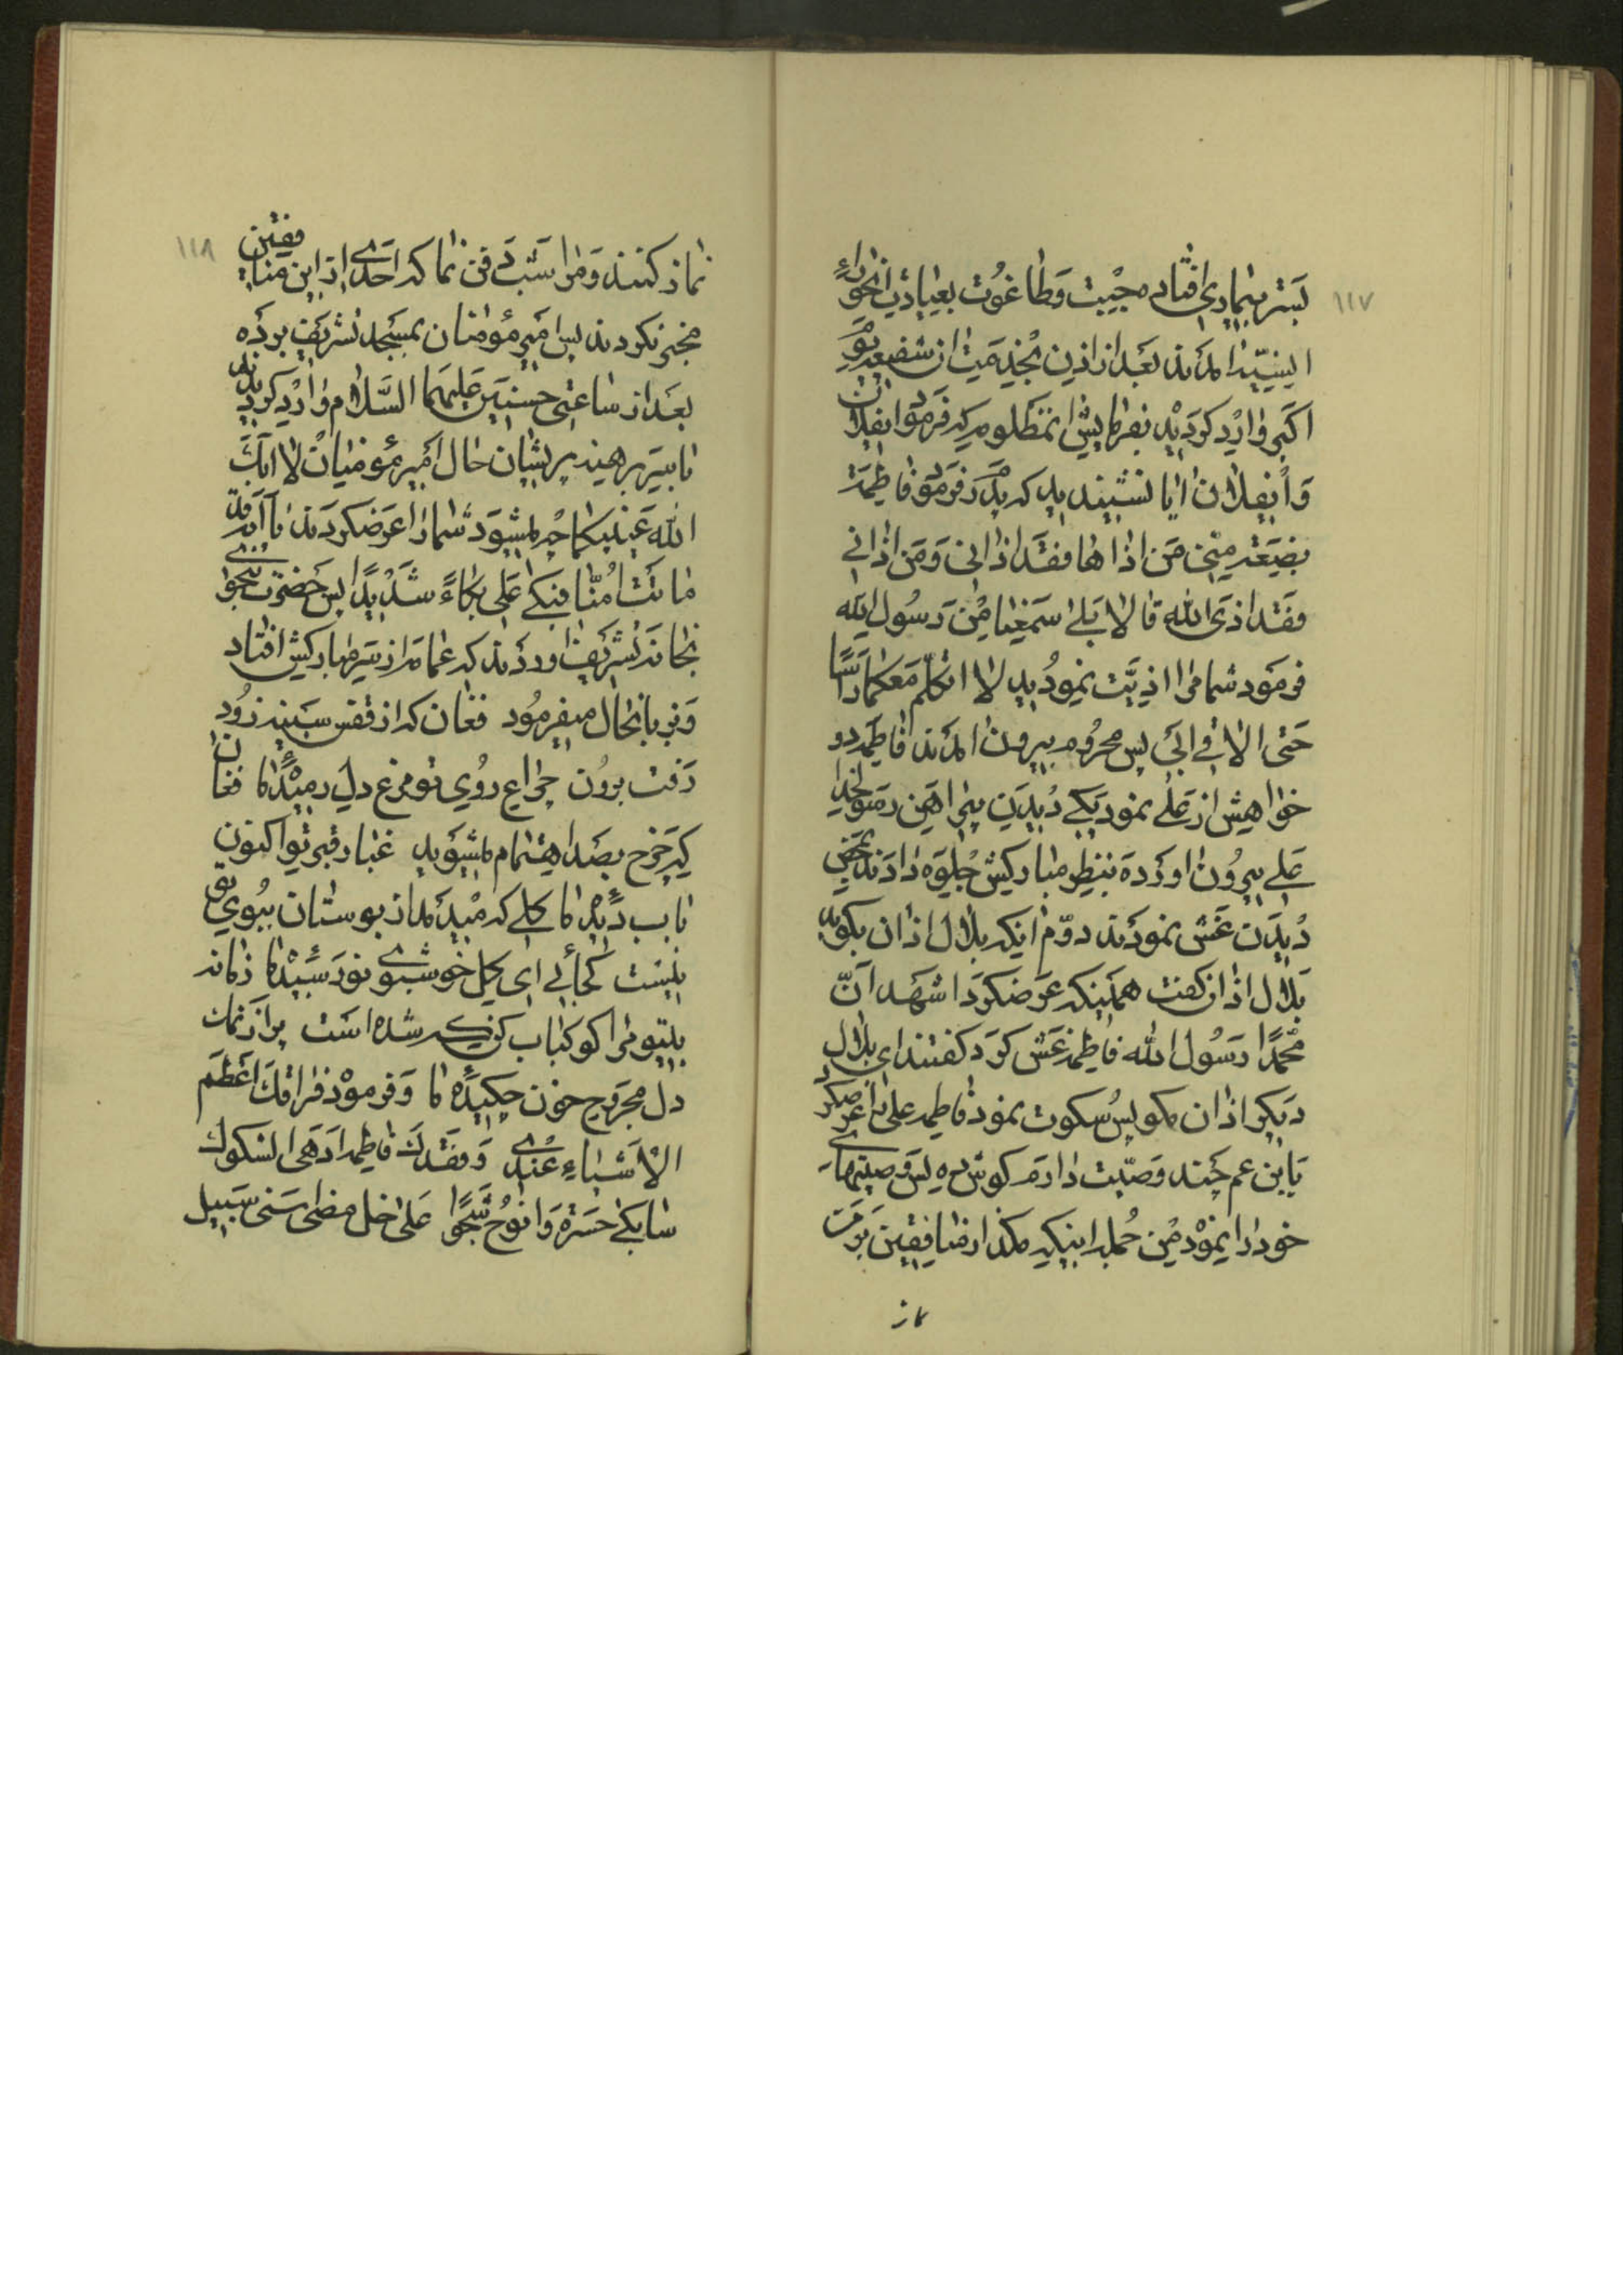 ۱۱۷
بستر بیماری افتاد جبت و طاغوت بعیادت انحوراء
انسیه آمدند بعد از اذن بخدمت آن شفیعه یوم
اکبر وارد کردید بفرمایش آن مظلومه که فرمود ایفلان
و ایفلان ایا نشنیدید که پدرم فرمود فاطمة
بضعة منی من اذاها فقد اذانی و من اذانی
فقد اذی الله قالا بلی سمعنا من رسول الله
فرمود شما مرا اذیت نمودید لا اتکلم معکما راسا
حتی الاقی ابی پس محروم بیرون آمدند فاطمه دو
خواهش از علی نمود یکی دیدن پیراهن رسولخدا
علی بیرون اورده بنظر مبارکش جلوه دادند بمحض
دیدن غش نمودند دوم اینکه بلال اذان بکوید
بلال اذان کفت همینکه عرضکرد اشهد ان
محمدا رسول الله فاطمه غش کرد کفتند ای بلال
دیکر اذان مکو پس سکوت نمود فاطمه علی را عرضکرد
یابن عم چند وصیت دارم کوش ده پس وصیتهای
خود را نمود من جمله اینکه مکذار منافقین بر من
نماز
۱۱۸
نماز کنند و مرا شب دفن نما که احدی از این منافقین
مخبر نکردند پس امیر مؤمنان بمسجد تشریف برده
بعد از ساعتی حسنین علیهما السلام وارد کردیدند
با سر برهنه پریشان حال امیر مؤمنان لا ابک
الله عینیکما چه میشود شما را عرضکردند یا ابه قد
ماتت امنا فبکی علی بکاء شدیدا پس حضرت بنحوی
بخانه تشریف اوردند که عمامه از سر مبارکش افتاد
و بزبانحال میفرمود فغان که از قفس سینه زود
رفت برون چراغ روی تو مرغ دل رمیده ما فغان
که چرخ بصد اهتمام میشوید غبار قبر تو اکنون
باب دیده ما کلی که میدمد از بوستان ببوی تو
نیست کجائی ای کل خوشبوی نورسیده ما زمانه
بیتو مرا کو کباب کن که شده است پر از نمک
دل مجروح خون چکیده ما و فرمود فراقک اعظم
الاشیاء عندی و فقدک فاطم ادهی الثکول
سابکی حسرة و انوح شجوا علی خل مضی اسنی سبیل